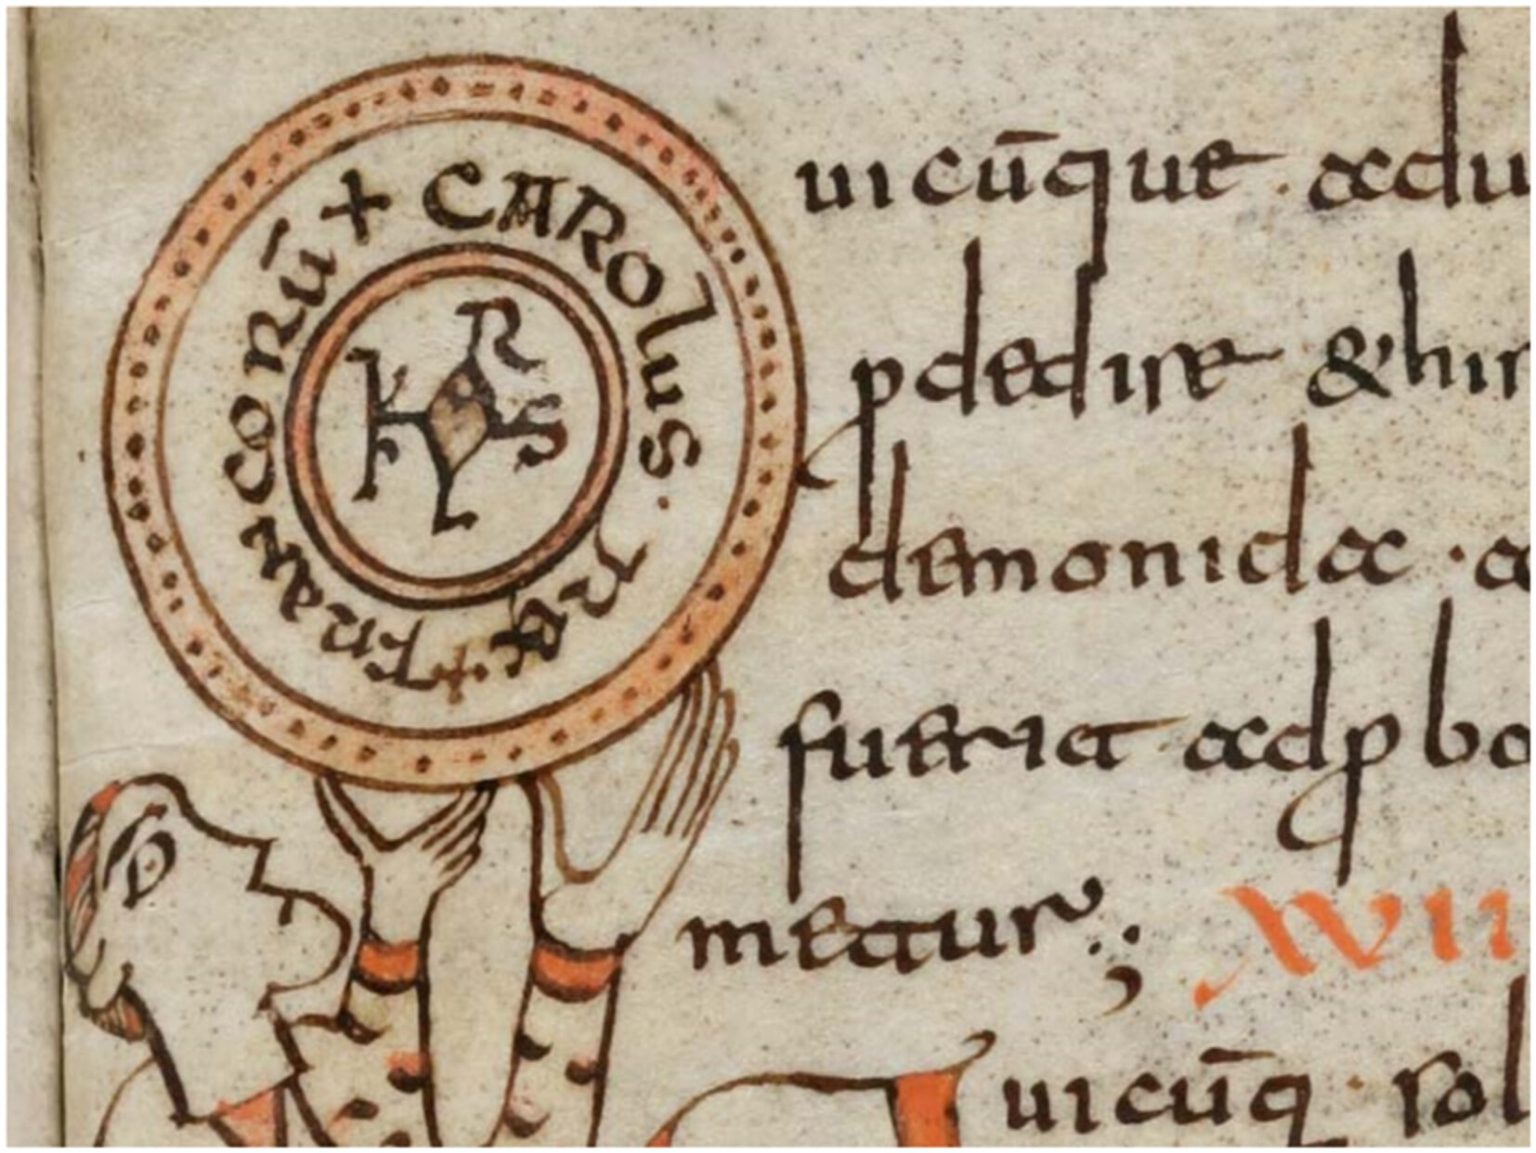 + CAROlus · rex + francorū
KRLS
uicūque · adu
pdedire & hir
demonida · a
fueria adp bo
meatur;
XVII
uicūq · sol